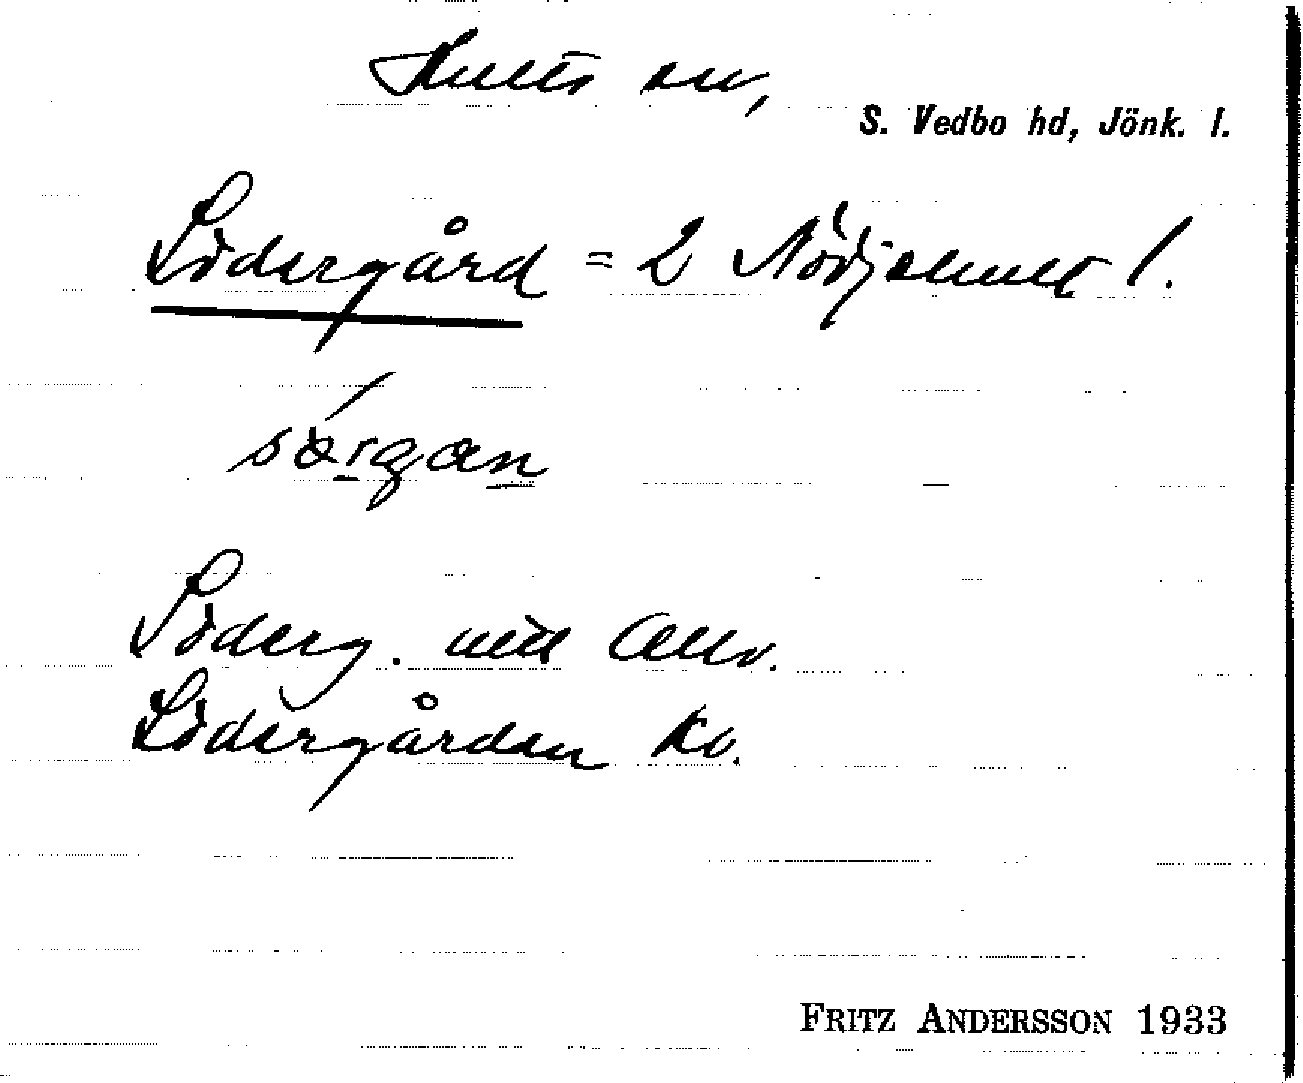 Hults sn,
S. Vedbo hd, Jönk. l.
Södergård = 2 Nödjehult 1.
sörgan
Söderg. utit Allm.
Södergården Kv.
FRITZ ANDERSSON 1933